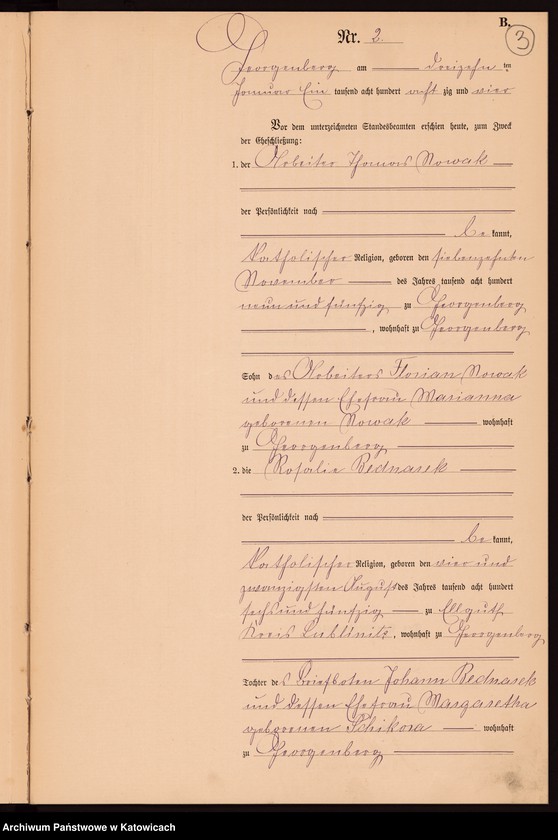 B.
3
Nr. 2.
Georgenberg am dreizehn ten
Januar Ein tausend acht hundert acht zig und vier
Vor dem unterzeichneten Standesbeamten erschien heute, zum Zweck
der Eheschließung:
1. der Arbeiter Thomas Nowak
der Persönlichkeit nach
be kannt,
katholischer Religion, geboren den siebenzehnten
November des Jahres tausend acht hundert
neun und fünfzig zu Georgenberg
, wohnhaft zu Georgenberg
Sohn des Arbeiters Florian Nowak
und dessen Ehefrau Marianna
geborenen Nowak wohnhaft
zu Georgenberg
2. die Rosalie Bednarek
der Persönlichkeit nach
be kannt,
katholischer Religion, geboren den vier und
zwanzigsten August des Jahres tausend acht hundert
sechs und fünfzig zu Ellguth
Kreis Lublinitz, wohnhaft zu Georgenberg
Tochter des Briefboten Johann Bednarek
und dessen Ehefrau Margaretha
geborenen Schikora wohnhaft
zu Georgenberg
Archiwum Państwowe w Katowicach